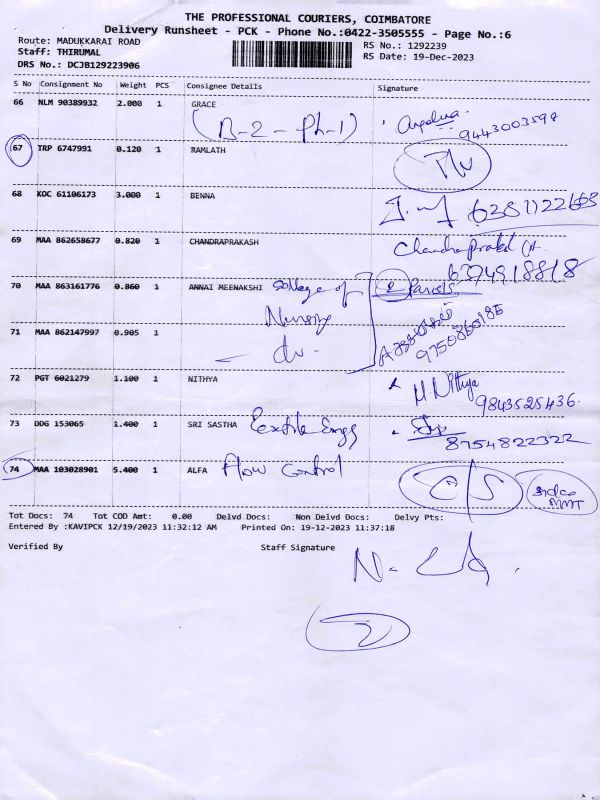 THE PROFESSIONAL COURIERS, COIMBATORE
Delivery Runsheet - PCK - Phone No.:0422-3505555 - Page No.:6
Route: MADUKKARAI ROAD
RS No.: 1292239
Staff: THIRUMAL
RS Date: 19-Dec-2023
DRS No.: DCJB129223906
S No Consignment No Weight PCS Consignee Details Signature
66 NLM 90389932 2.000 1 GRACE
(B-2-Ph-1)
9443003597
67 TRP 6747991 0.120 1 RAMLATH
68 KOC 61106173 3.000 1 BENNA
6381122663
69 MAA 862658677 0.820 1 CHANDRAPRAKASH
6394918818
70 MAA 863161776 0.860 1 ANNAI MEENAKSHI College of 2 Parcels
Nursing
71 MAA 862147997 0.905 1
72 PGT 6021279 1.100 1 NITHYA M. Nithya
9843525436.
73 DDG 153065 1.400 1 SRI SASTHA Textile Engg
8754822322
74 MAA 103028901 5.400 1 ALFA Flow Control
Tot Docs: 74 Tot COD Amt: 0.00 Delvd Docs: Non Delvd Docs: Delvy Pts:
Entered By :KAVIPCK 12/19/2023 11:32:12 AM Printed On: 19-12-2023 11:37:18
Verified By Staff Signature
2